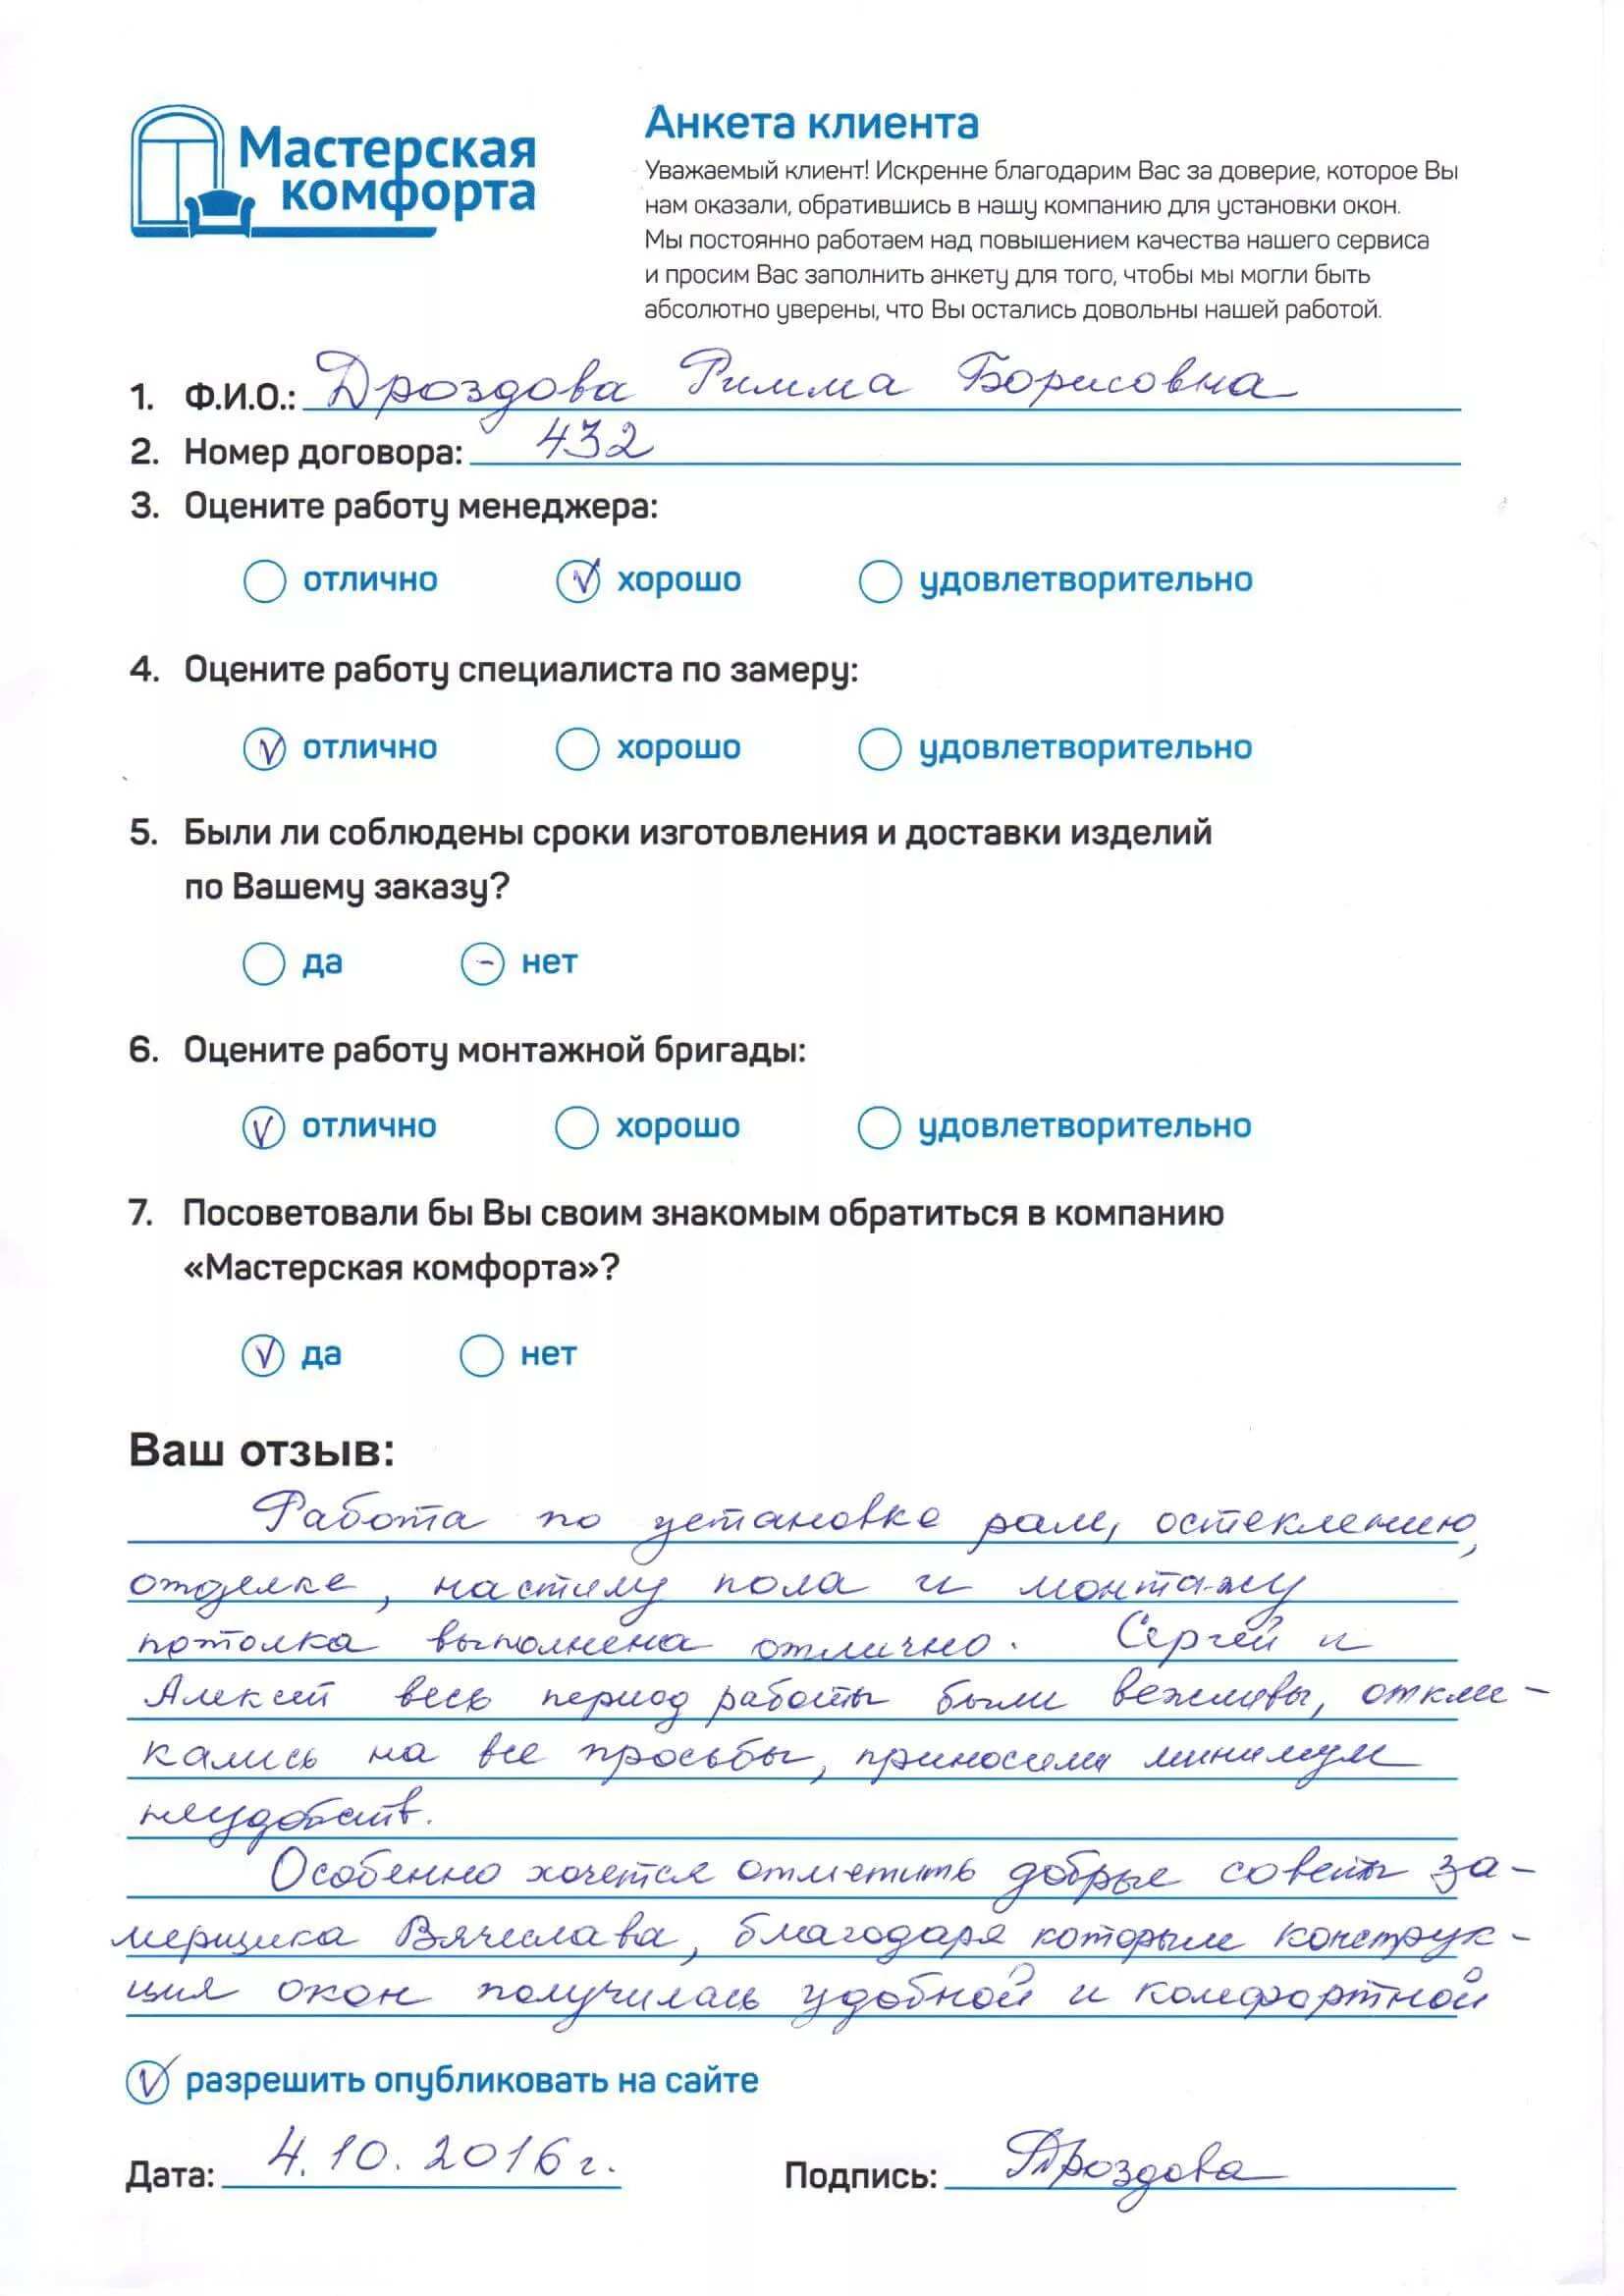 Мастерская
комфорта
Анкета клиента
Уважаемый клиент! Искренне благодарим Вас за доверие, которое Вы
нам оказали, обратившись в нашу компанию для установки окон.
Мы постоянно работаем над повышением качества нашего сервиса
и просим Вас заполнить анкету для того, чтобы мы могли быть
абсолютно уверены, что Вы остались довольны нашей работой.
1. Ф.И.О.: Дроздова Римма Борисовна
2. Номер договора: 432
3. Оцените работу менеджера:
отлично V хорошо удовлетворительно
4. Оцените работу специалиста по замеру:
V отлично хорошо удовлетворительно
5. Были ли соблюдены сроки изготовления и доставки изделий
по Вашему заказу?
да - нет
6. Оцените работу монтажной бригады:
V отлично хорошо удовлетворительно
7. Посоветовали бы Вы своим знакомым обратиться в компанию
«Мастерская комфорта»?
V да нет
Ваш отзыв:
Работа по установке рам, остеклению,
отделке, настилу пола и монтажу
потолка выполнена отлично. Сергей и
Алексей весь период работы были вежливы, откли-
кались на все просьбы, приносили минимум
неудобств.
Особенно хочется отметить добрые советы за-
мерщика Вячеслава, благодаря которым конструк-
ция окон получилась удобной и комфортной
V разрешить опубликовать на сайте
Дата: 4.10.2016г. Подпись: Дроздова